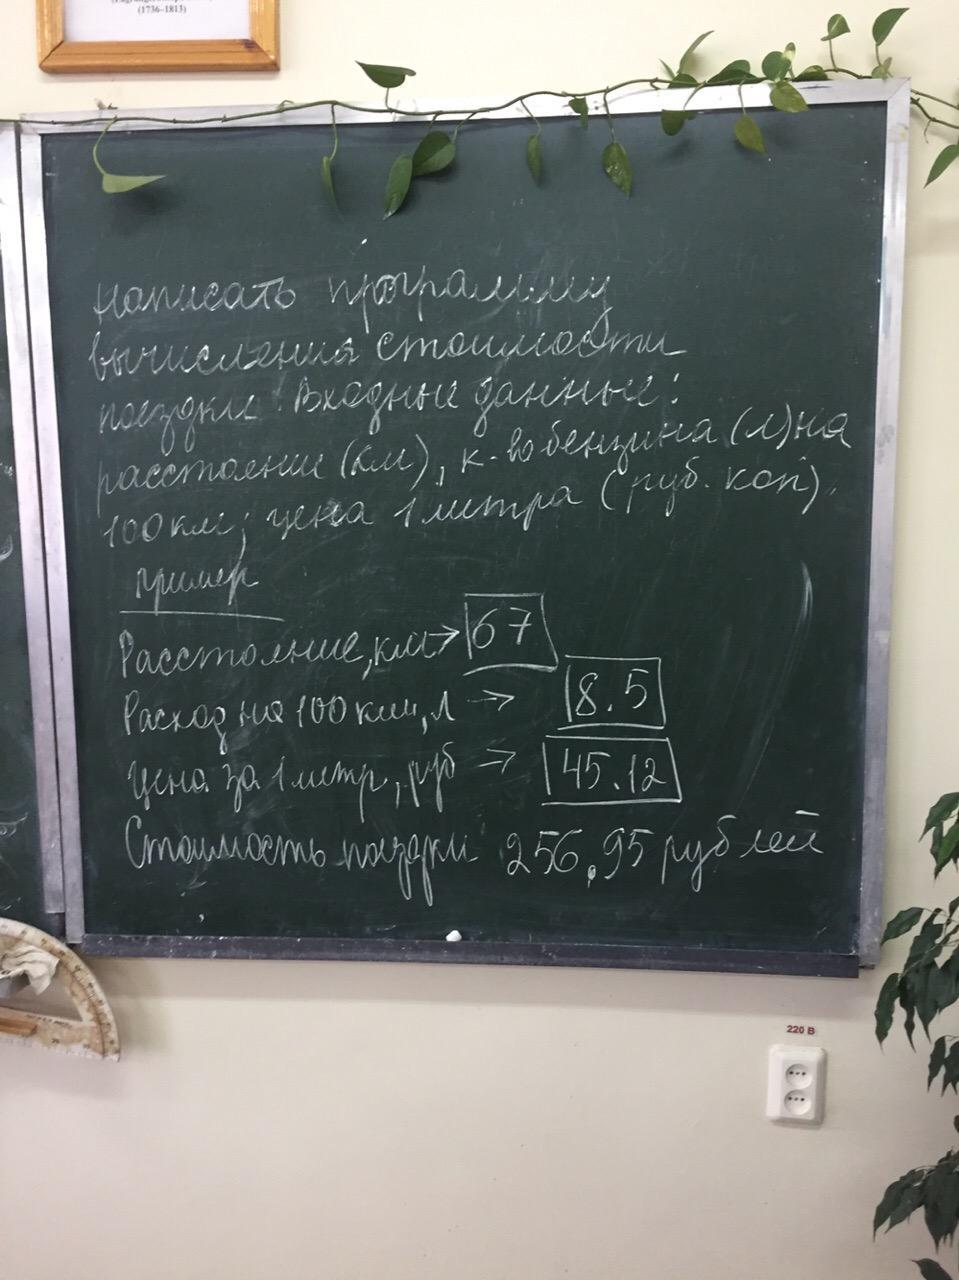 (1736–1813)
написать программу
вычисления стоимости
поездки. Входные данные:
расстояние (км), к-во бензина (л) на
100 км; цена 1 литра (руб. коп).
пример
Расстояние, км → 67
Расход на 100 км, л → 8.5
Цена за 1 литр, руб → 45.12
Стоимость поездки 256,95 рублей
220 В